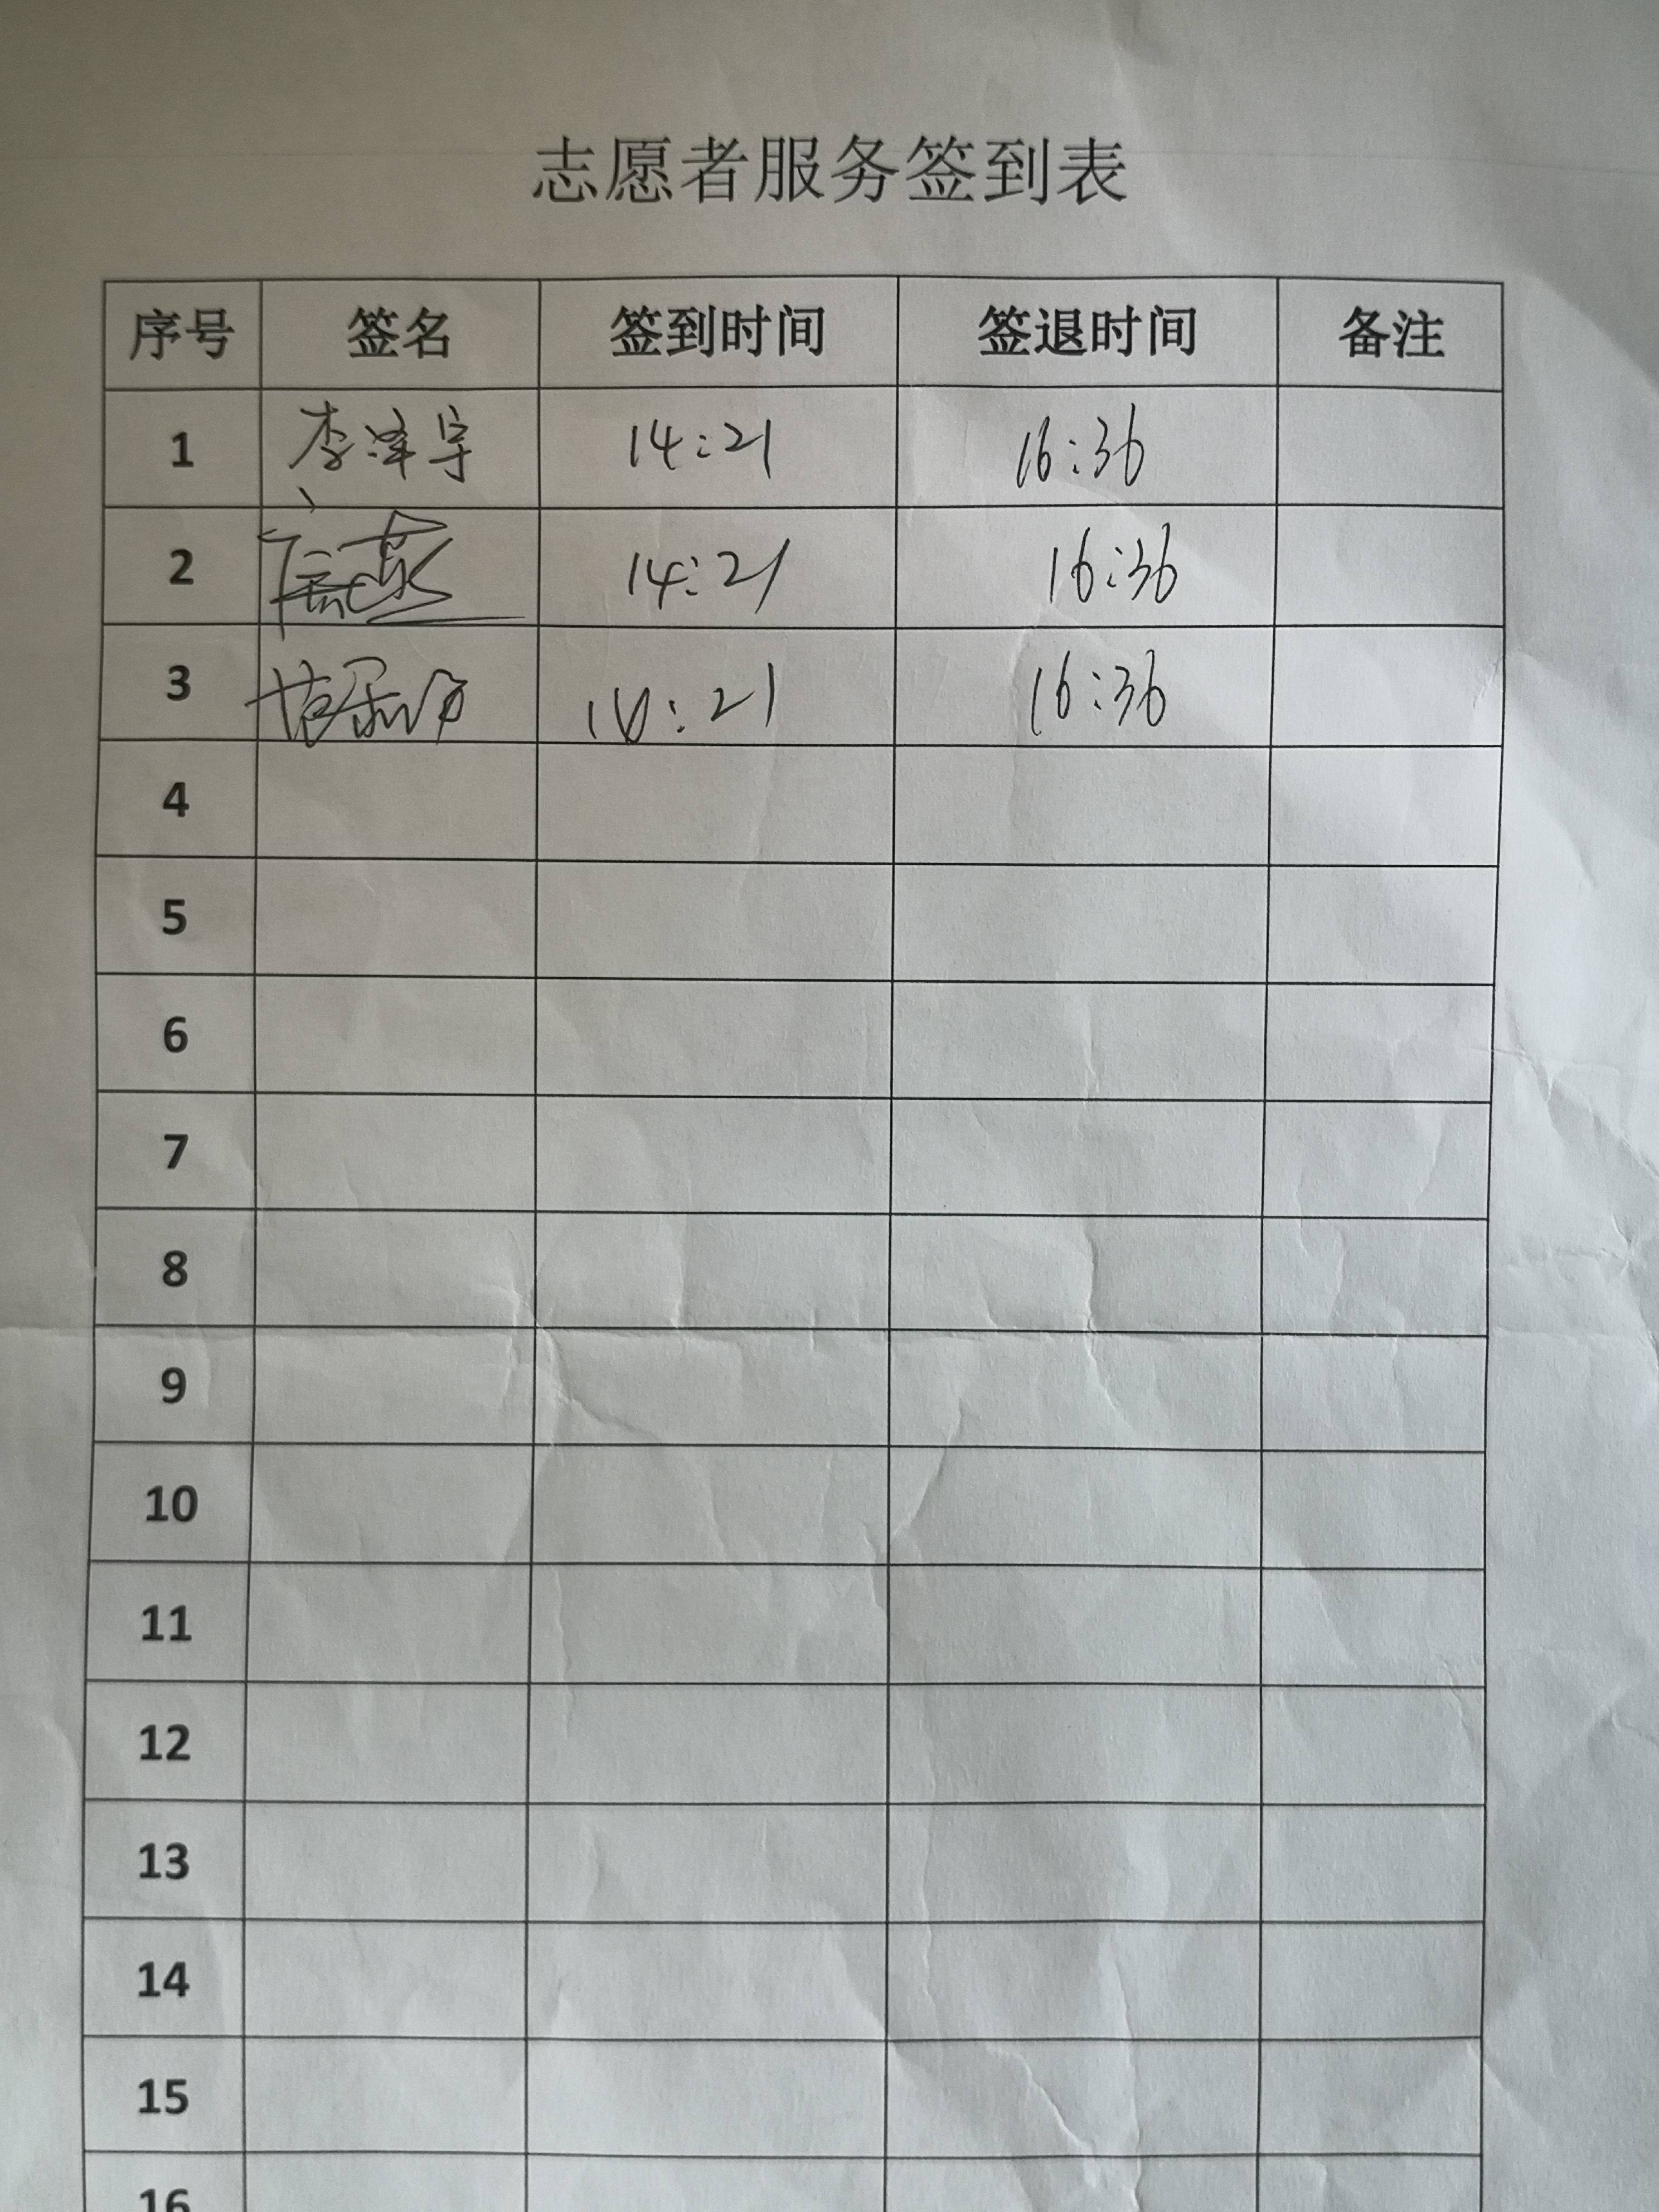 志愿者服务签到表
序号 签名 签到时间 签退时间 备注
1 李泽宇 14:21 16:36
2 14:21 16:36
3 14:21 16:36
4
5
6
7
8
9
10
11
12
13
14
15
16